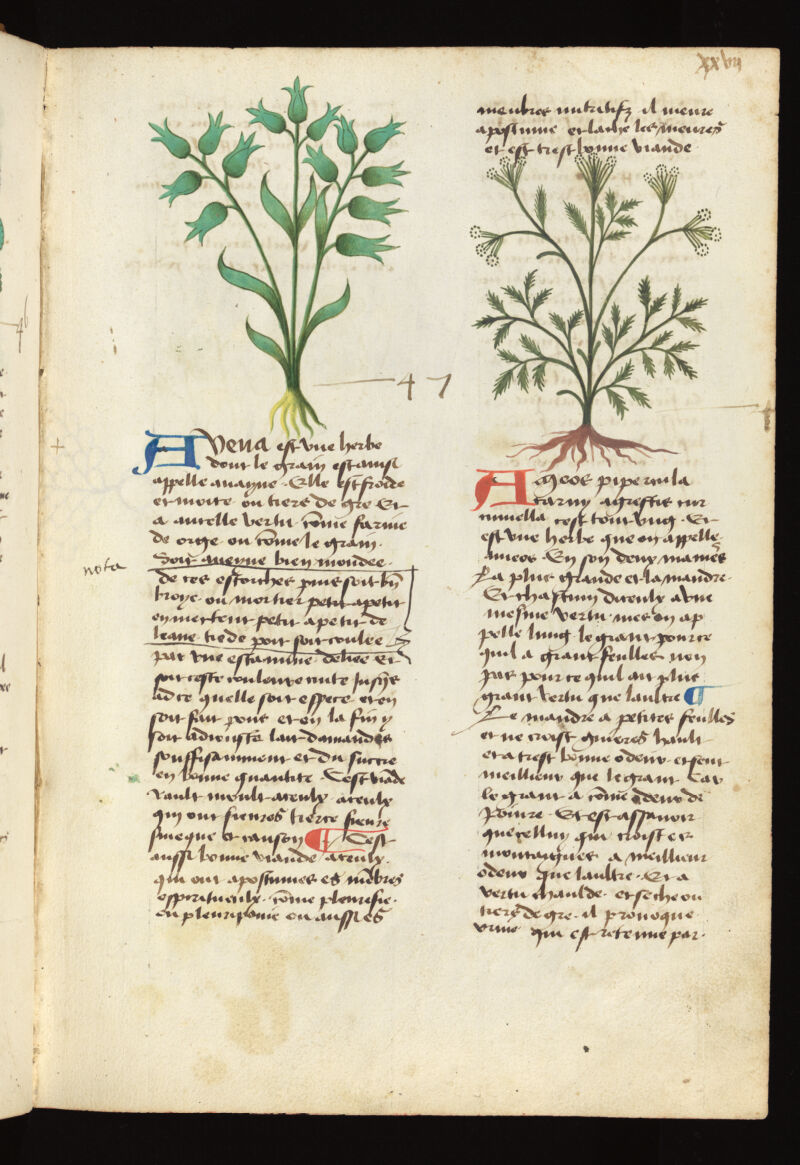 xxvii
Avena est vne herbe
dont le grain est ainsi
appelle auayne. Elle est froide
et moite ou tiers degre Et
a autelle vertu cōme farine
de orge ou cōme le grain.
Soit aueyne bien mondee
de ces escorches puis soit bn̄
broye ou mortier petit apetit
en mettent petit apetit de
leaue tiede poit soit coulee
par vne estamine deliee Et
soit ceste couleure cuite jusqs
adce quelle soit espece et en
soit fait pous et en la fin y
soit adiouste lait damandes
souffisamment et du succre
en bonne quantite. Cest viāde
vault moult aceulx aceulx
qui ont fieures tierce fieure
sineque et causon ¶ Cest
aussi bonne viande aceulx
qui ont apostumes es mēbres
espirituculx. cōme pleurisie.
ou pleuripomie ou aussi es
nota
47
menbres nutritifz il meure
apostume et lache les meures
et est trest bonne viande
Ameos pipercula
caruy agrestis cur
minella cest tout vng. Et
est vne herbe que on appelle
ameos. En son deux manieres
La plus grande et la mandre.
Et chascun diceulx a vne
mesme vertu. mes on ap
pelle lung le grant pource
quil a grant feulles non
pas pour ce quil ait plus
grant vertu que laultre ¶
Le mandre a petites feulles
et ne croist guieres hault
et a trest bonne odeur et sent
meilleur que le grant Car
le grant a cōme odeur de
poiure. Et est assauoir
que celluy qui croist es
montaignes a meilleur
odeur que laultre. Et a
vertu chaulde. et seche ou
tiers degre. il prouoque
vrine qui est retenue par.